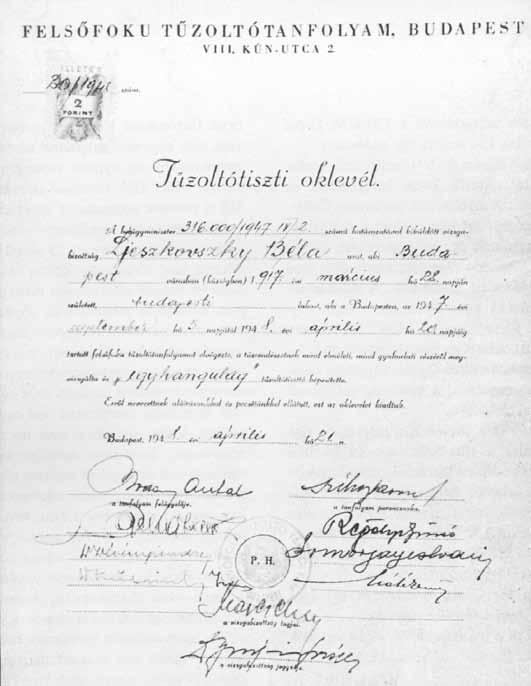 FELSŐFOKU TŰZOLTÓTANFOLYAM, BUDAPEST
VIII, KÚN-UTCA 2
ILLETÉK
20/1948 szám.
2
FORINT
Tűzoltótiszti oklevél.
A belügyminiszter 316.000/1947 IV/2. számú határozatával kiküldött vizsga-
bizottság Ljeszkovszky Béla urat, aki Buda-
pest városban (községben) 1917 évi március hó 28. napján
született, budapesti lakost, aki a Budapesten, az 1947
szeptember hó 5. napjától 1948. évi április hó 20. napjáig
tartott felsőfoku tűzoltótanfolyamot elvégezte, a tűzrendészetnek mind elméleti, mind gyakorlati részéből meg-
vizsgálta és „egyhangulag" tűzoltótisztté képesítette.
Erről nevezettnek aláírásunkkal és pecsétünkkel ellátott, ezt az oklevelet kiadtuk.
Budapest, 1948. évi április hó 21.
Antal
a tanfolyam felügyelője.
a tanfolyam parancsnoka.
P. H.
a vizsgabizottság tagjai.
a vizsgabizottság jegyzője.